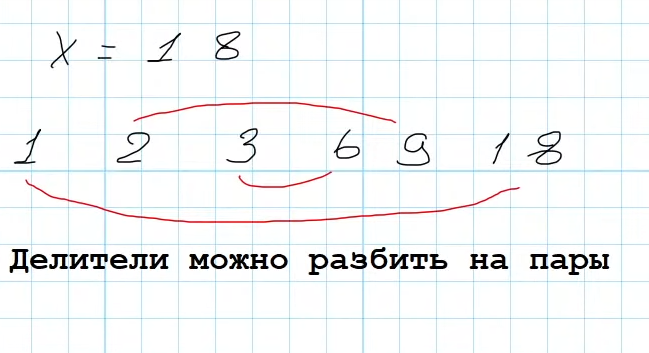 X = 18
1 2 3 6 9 18
Делители можно разбить на пары